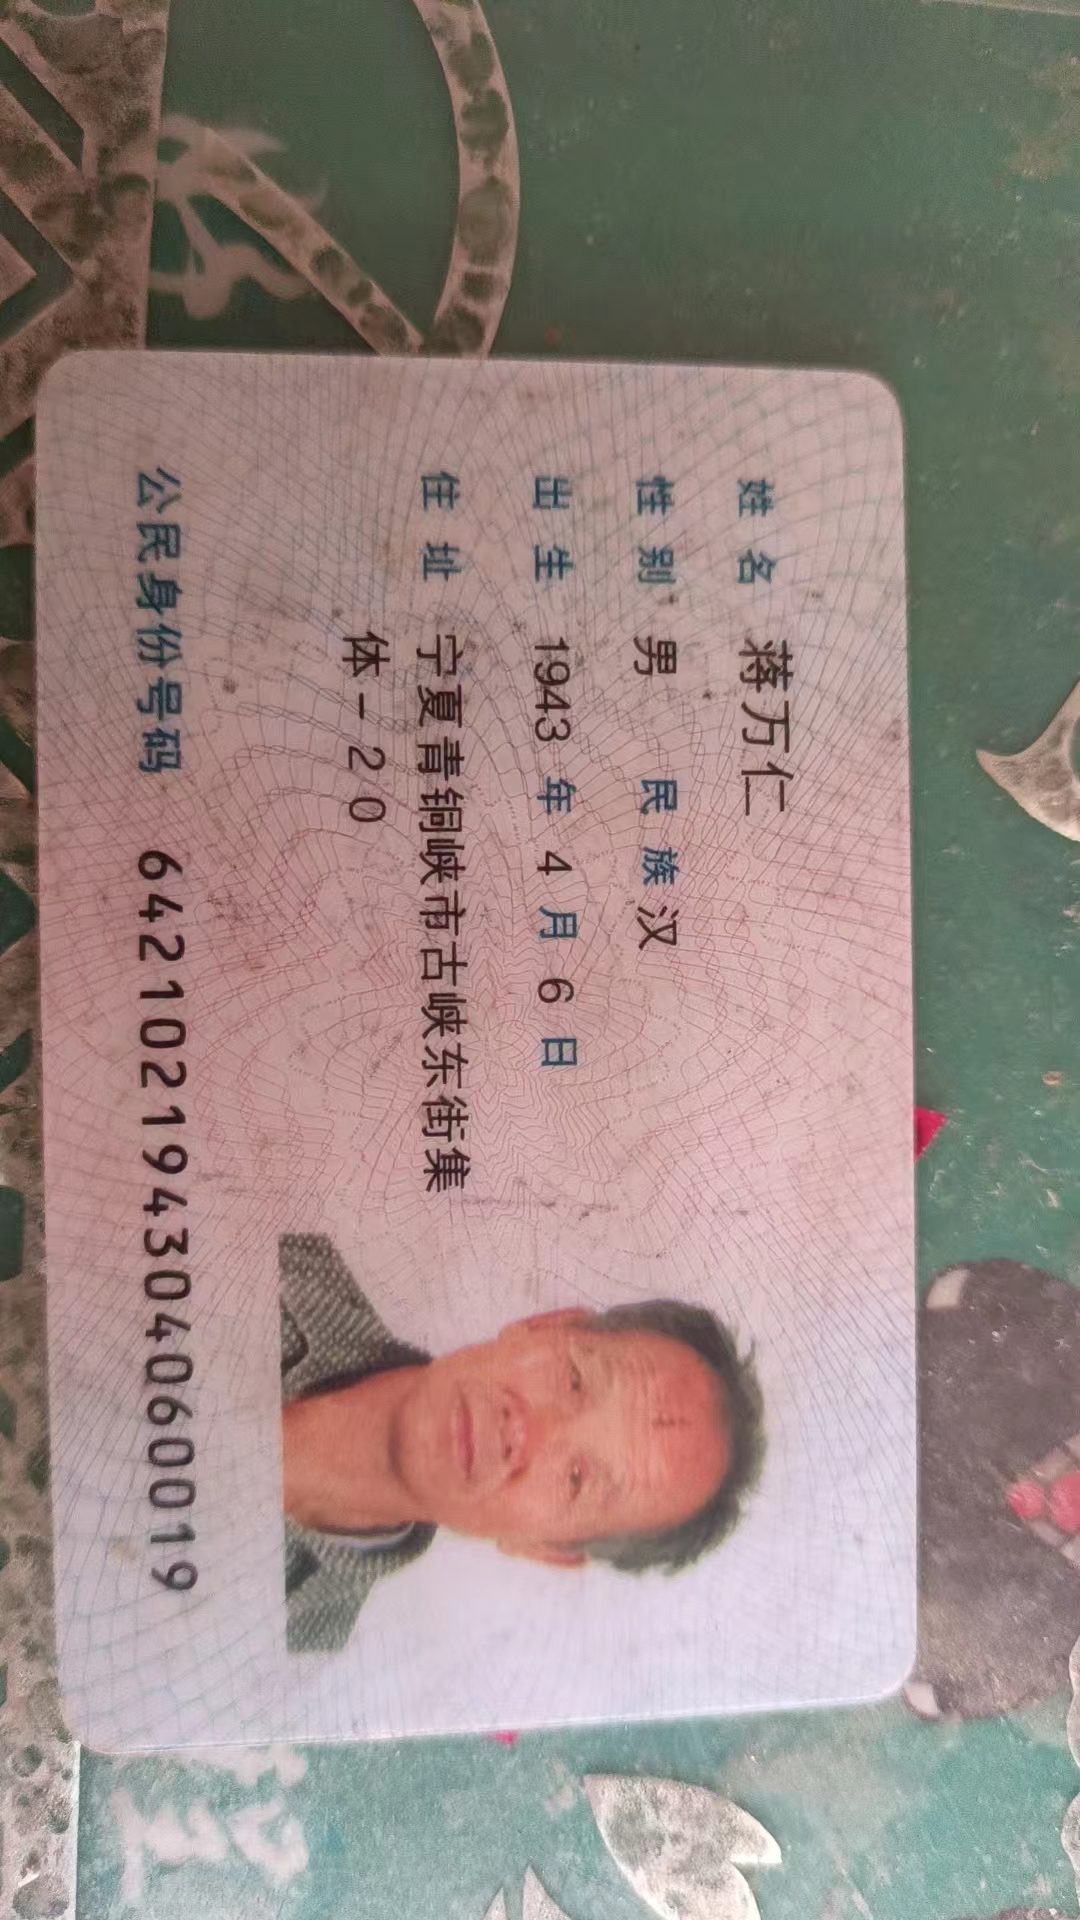 姓名 蒋万仁
性别 男 民族 汉
出生 1943 年 4 月 6 日
住址 宁夏青铜峡市古峡东街集
体-20
公民身份号码 642102194304060019